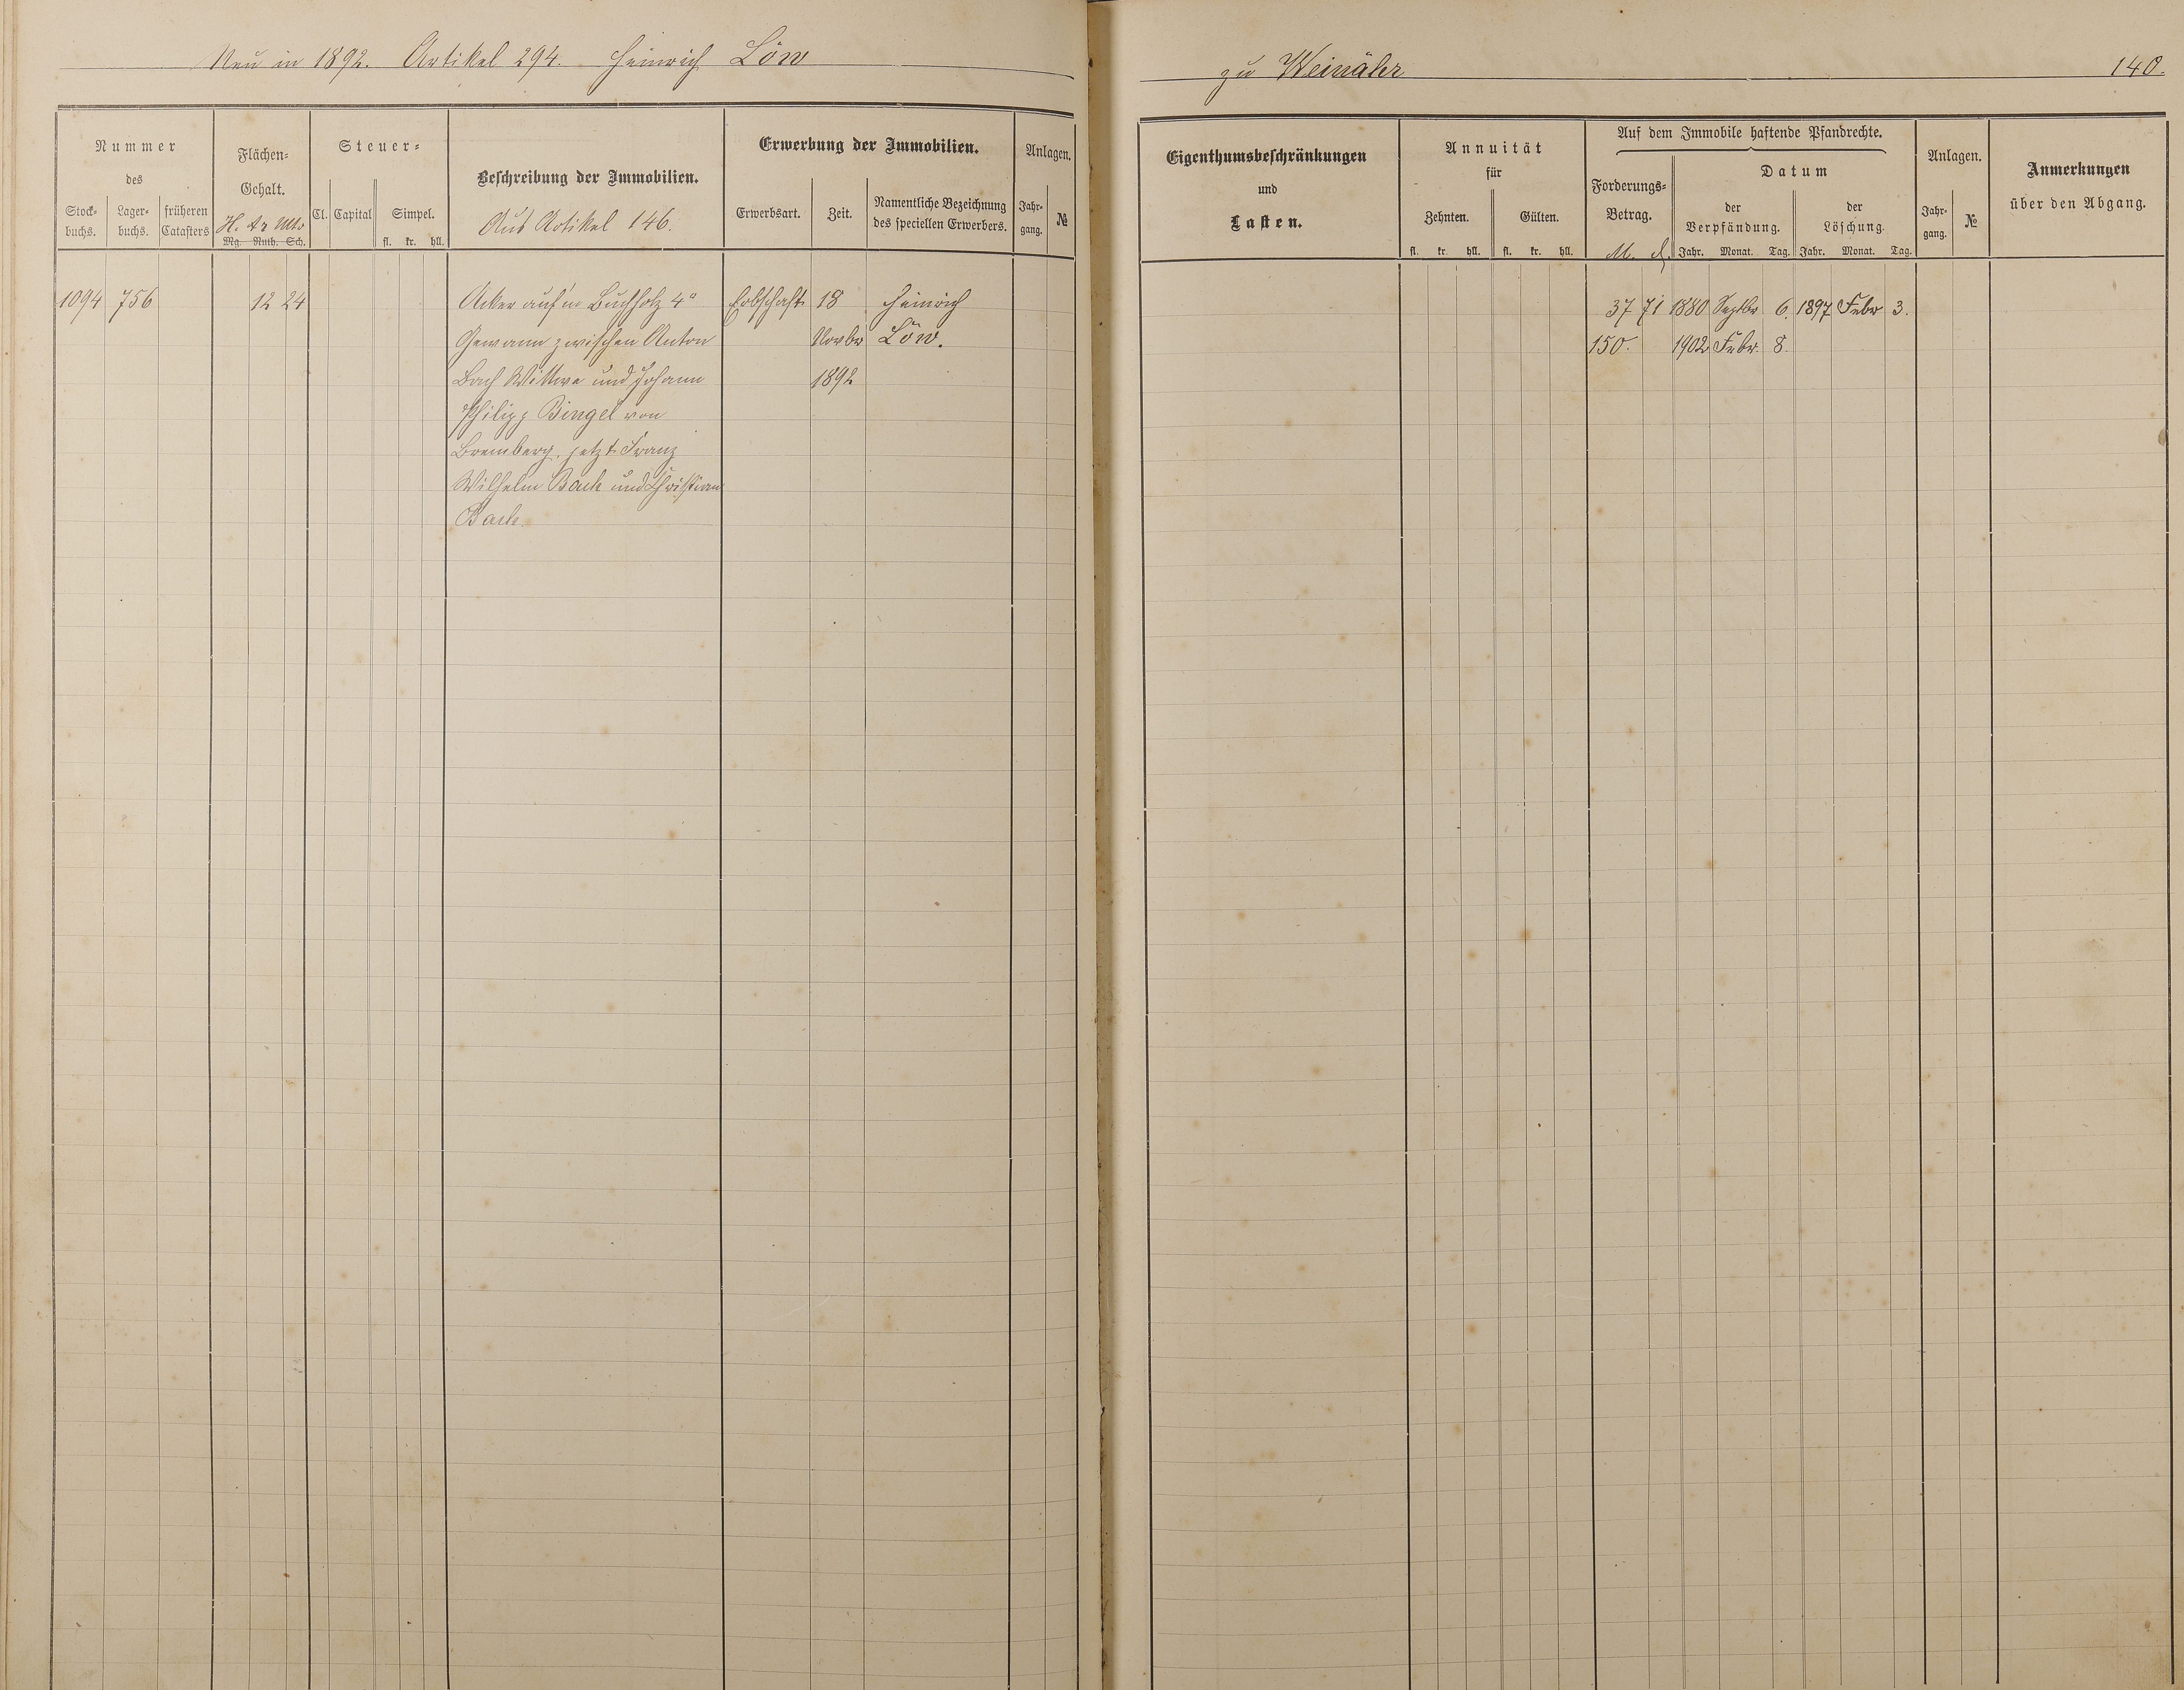 Neu in 1892. Artikel 294. Heinrich Löw
zu Weinähr
140.
Nummer
des
Stock-
buchs.
Lager-
buchs.
früheren
Catasters
Flächen-
Gehalt.
H. Ar Mtr
Mg. Ruth. Sch.
Steuer-
Cl.
Capital
Simpel.
fl. kr. hll.
Beschreibung der Immobilien.
Aus Artikel 146.
Erwerbung der Immobilien.
Erwerbsart.
Zeit.
Namentliche Bezeichnung
des speciellen Erwerbers.
Anlagen.
Jahr-
gang.
№
Eigenthumsbeschränkungen
und
Lasten.
Annuität
für
Zehnten.
Gülten.
fl. kr. hll. fl. kr. hll.
Auf dem Immobile haftende Pfandrechte.
Forderungs-
Betrag.
M. d.
Datum
der
Verpfändung.
Jahr. Monat. Tag.
der
Löschung.
Jahr. Monat. Tag.
Anlagen.
Jahr-
gang.
№
Anmerkungen
über den Abgang.
1094 756 12 24 Acker auf'm Buchholz 4r Erbschaft 18 Heinrich 37 71 1880 Septbr 6. 1897 Febr 3.
Gewann zwischen Anton Novbr Löw. 150. 1902 Febr. 8.
Bach Wittwe und Johann 1892
Philipp Bingel von
Bremberg, jetzt Franz
Wilhelm Bach und Christian
Bach.